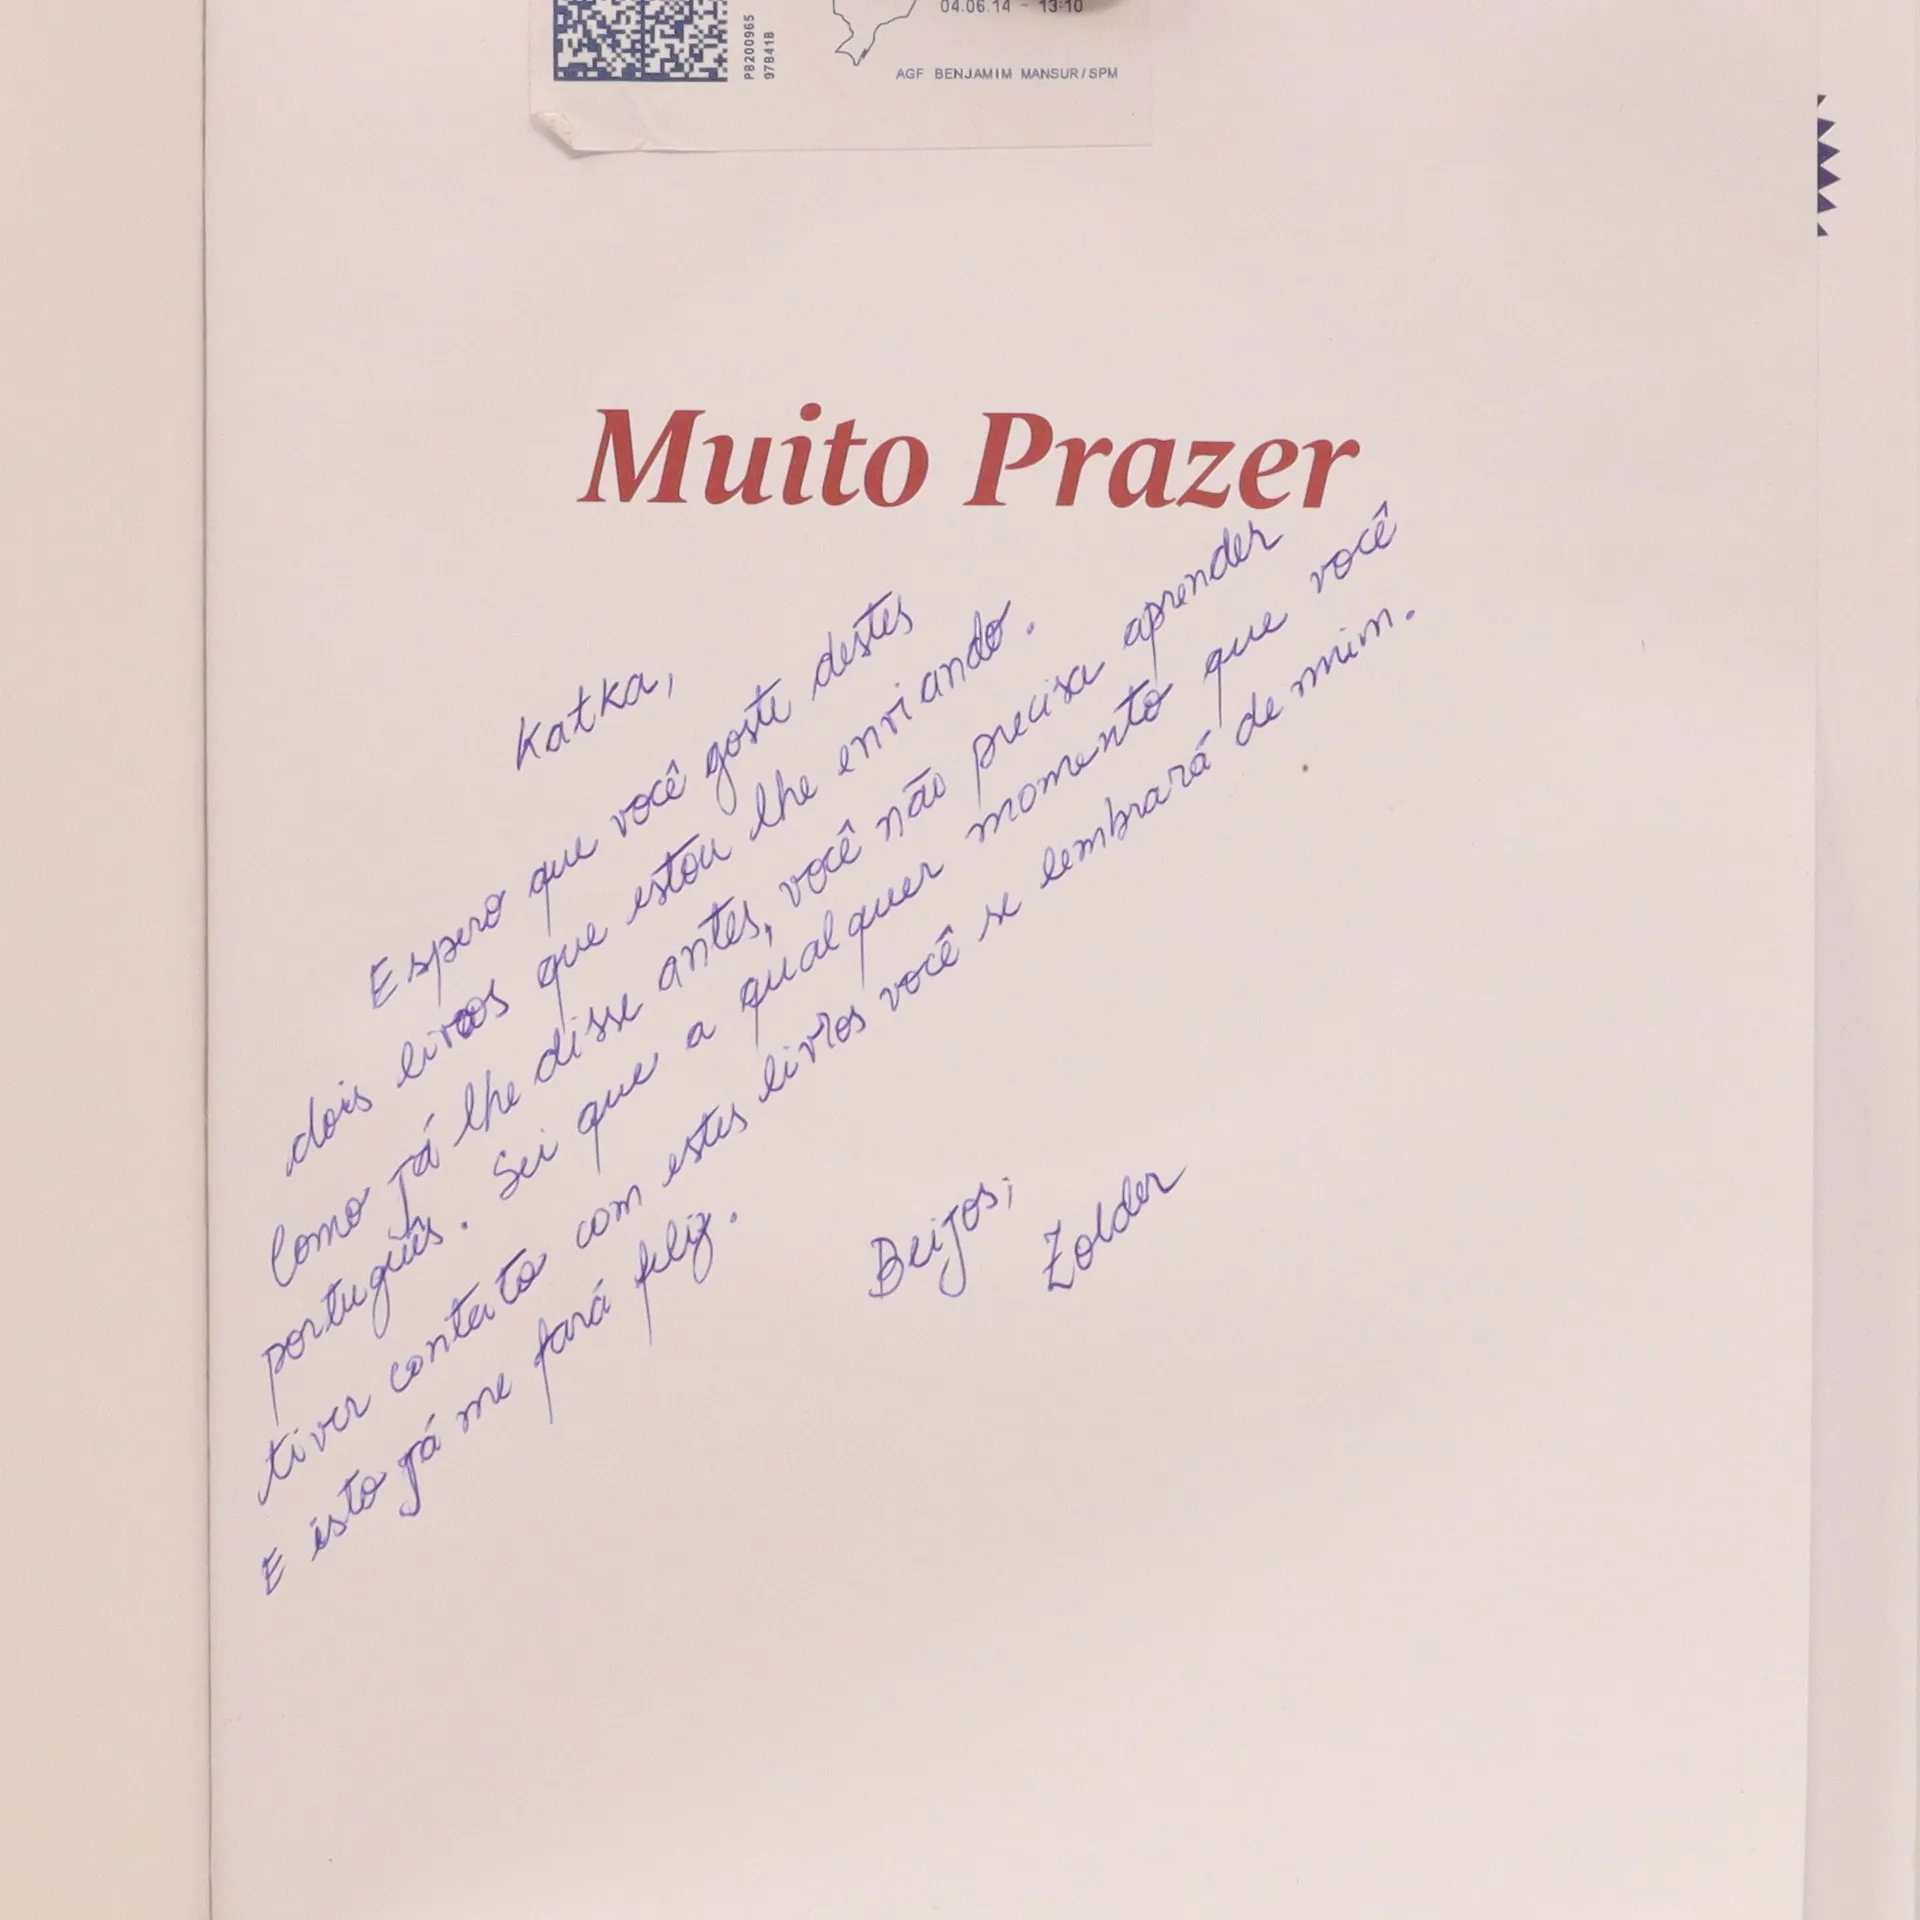 04.06.14 - 13:10
PB200965
97B41B
AGF BENJAMIM MANSUR/SPM
Muito Prazer
Katka,
Espero que você goste destes
dois livros que estou lhe enviando.
Como já lhe disse antes, você não precisa aprender
português. Sei que a qualquer momento que você
tiver contato com estes livros você se lembrará de mim.
E isto já me fará feliz.
Beijos,
Zolder